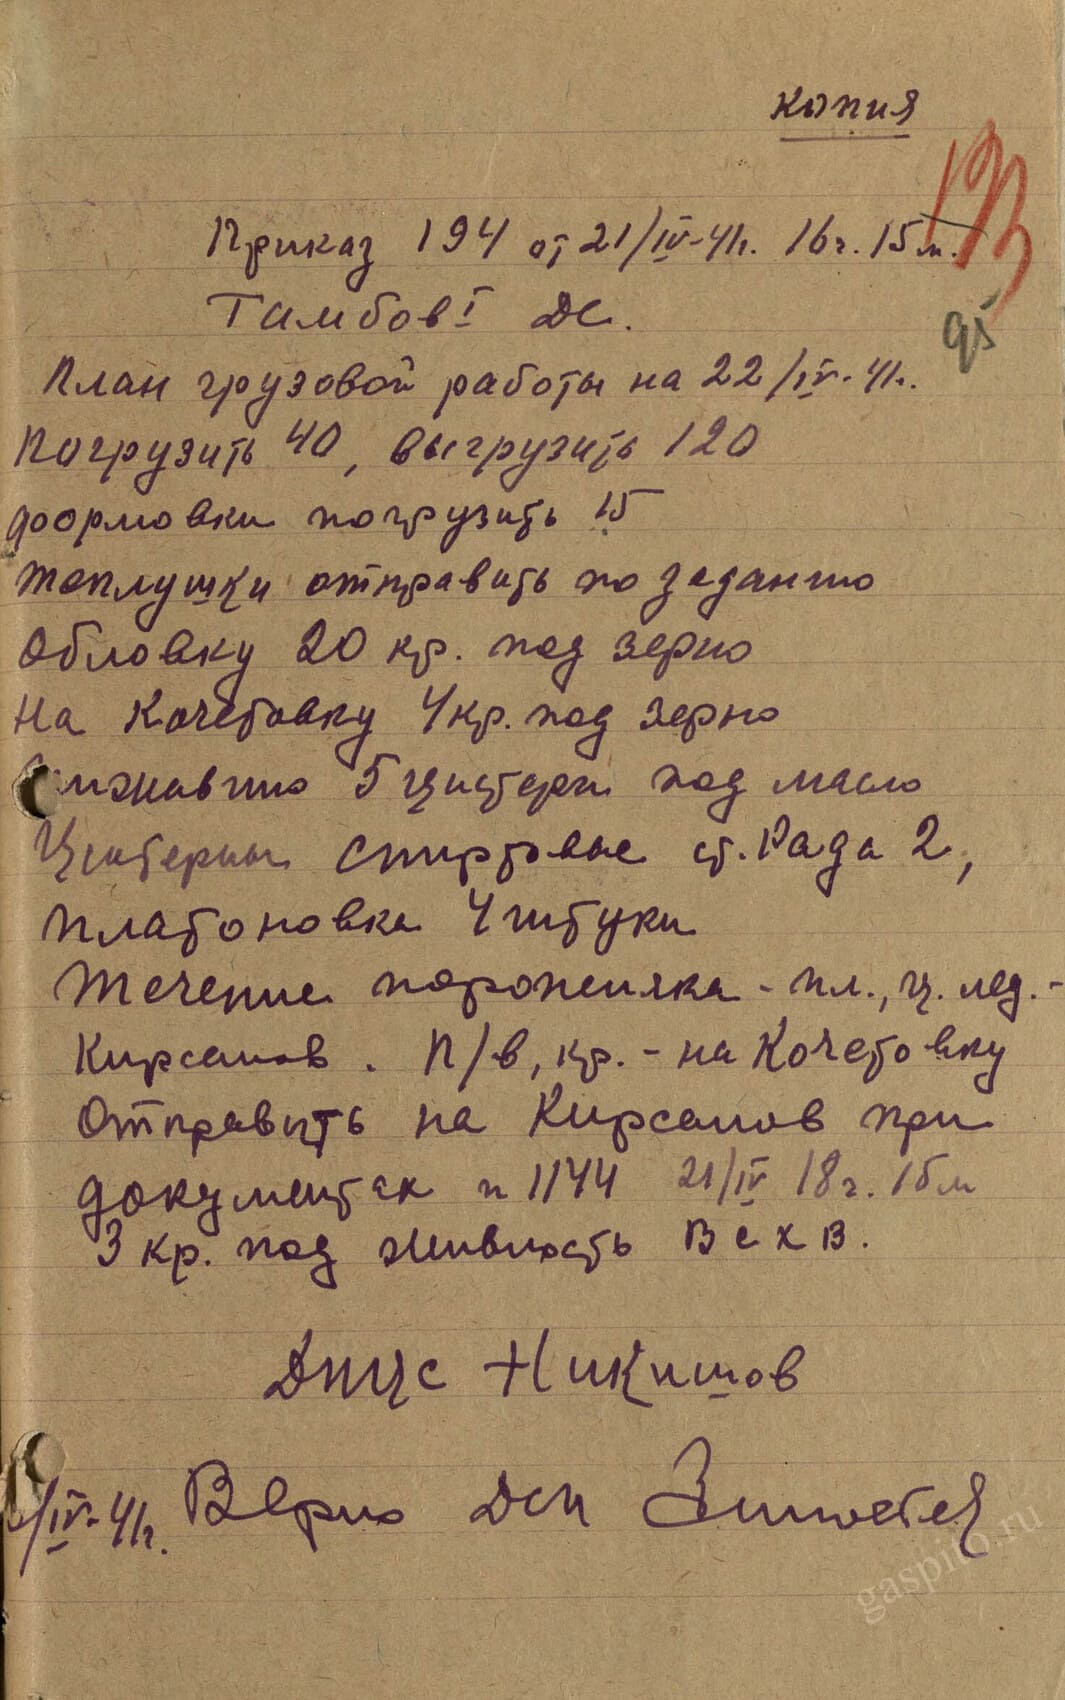 копия
193
95
Приказ 194 от 21/IV-41г. 16ч. 15м.
Тамбов I ДС.
План грузовой работы на 22/IV-41г.
Погрузить 40, выгрузить 120
формовки погрузить 15
теплушки отправить по заданию
Обловку 20 кр. под зерно
На Кочетовку 4 кр. под зерно
5 цистерн под масло
Цистерны спиртовые ст. Рада 2,
Платоновка 4 штуки
Течение порожняка - пл., ц. лед. -
Кирсанов. П/в, кр. - на Кочетовку
Отправить на Кирсанов при
документах п 1144 21/IV 18ч. 15м
3 кр. под живность ВСХВ.
ДНЦС Никишов
/IV-41г. Верно ДСП
gaspito.ru